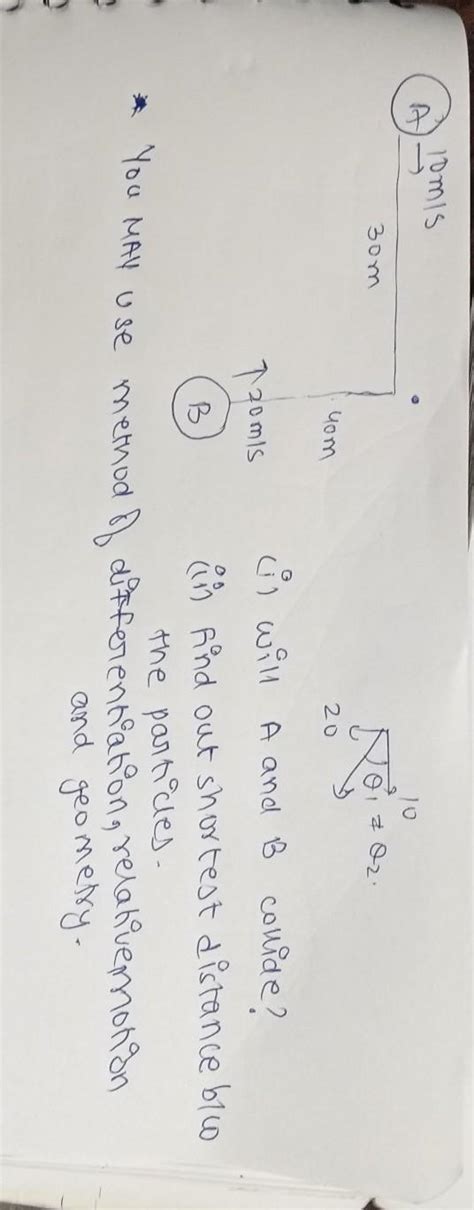 A
10m/s
→
30m
40m
↑20m/s
B
10
20
θ₁ ≠ θ₂.
(i) will A and B collide?
(ii) Find out shortest distance b/w
the particles.
* You MAY use method of differentiation, relative motion
and geometry.